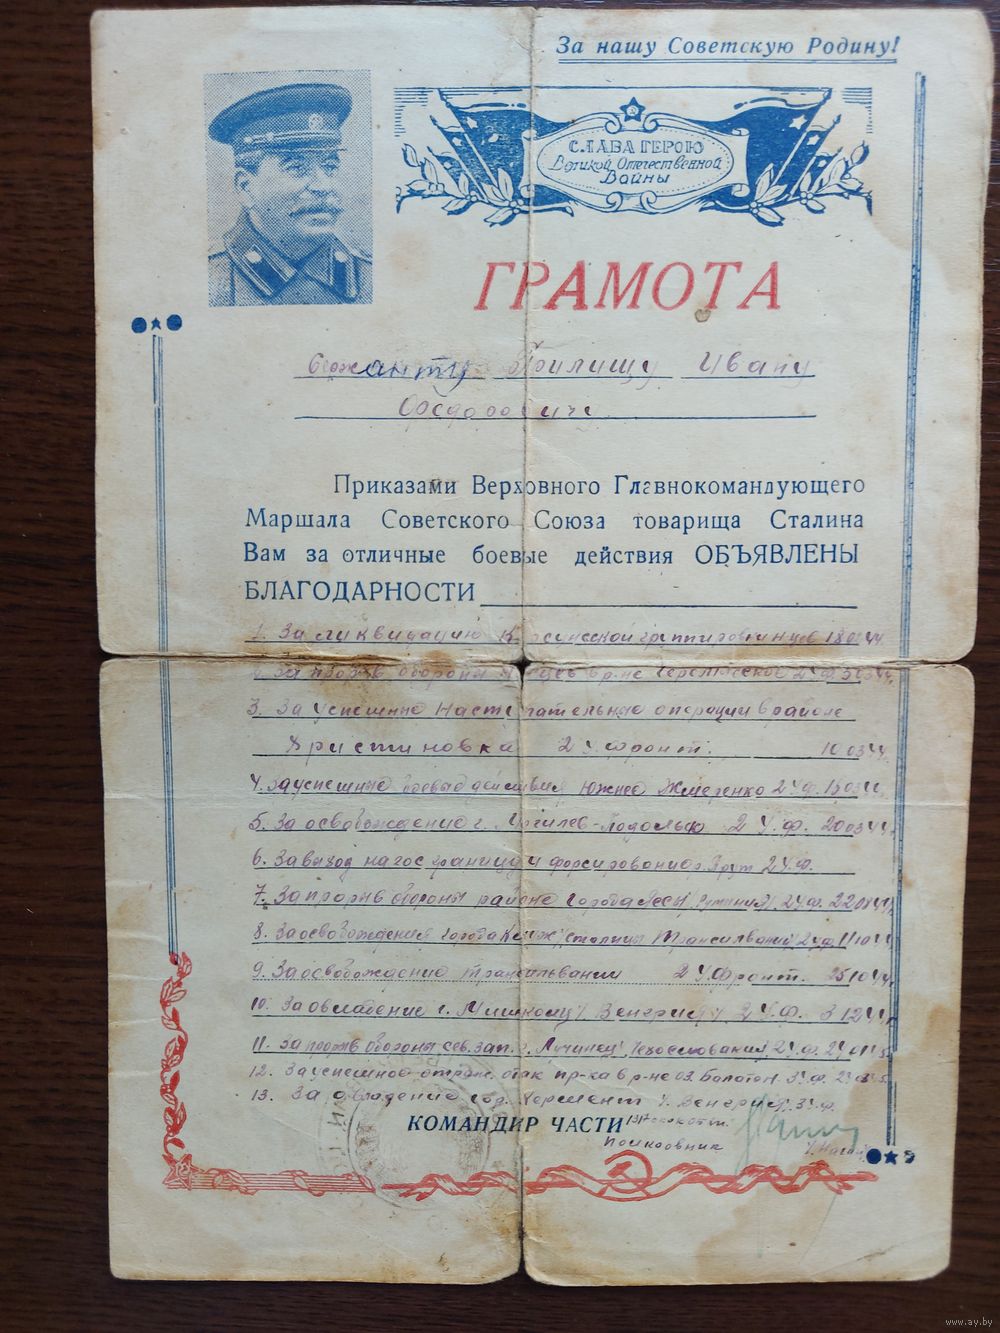 За нашу Советскую Родину!
СЛАВА ГЕРОЮ
Великой Отечественной
Войны
ГРАМОТА
Сержанту Ивану
Приказами Верховного Главнокомандующего
Маршала Советского Союза товарища Сталина
Вам за отличные боевые действия ОБЪЯВЛЕНЫ
БЛАГОДАРНОСТИ
1. За ликвидацию группировки
2. За прорыв обороны немцев в р-не 2 У.Ф. 5 03 44г.
3. За успешные наступательные операции в районе
Христиновка 2 У. фронт. 10 03 44г.
4. За успешные боевые действия южнее Жмеренко 2 У.Ф.
5. За освобождение г. Могилев-Подольск 2 У.Ф. 20 03 44г.
6. За выход на гос границу и форсирование р. Прут 2 У.Ф.
7. За прорыв обороны районе города Яссы (Румыния) 2 У.Ф. 22 08 44г.
8. За освобождения города Клуж столицы 2 У.Ф. 11 10 44
9. За освобождение Трансильвании 2 У. Фронт. 25 10 44г.
10. За овладение г. Мишкольц Венгрия 2 У.Ф. 3 12 44г.
11. За прорыв обороны сев. зап. г. Лучинец 2 У.Ф.
12. За успешное отраж. атак пр-ка в р-не оз. Балотон. 3 У.Ф.
13. За овладение гор. Венгрия 3 У.Ф.
КОМАНДИР ЧАСТИ
полковник
www.ay.by